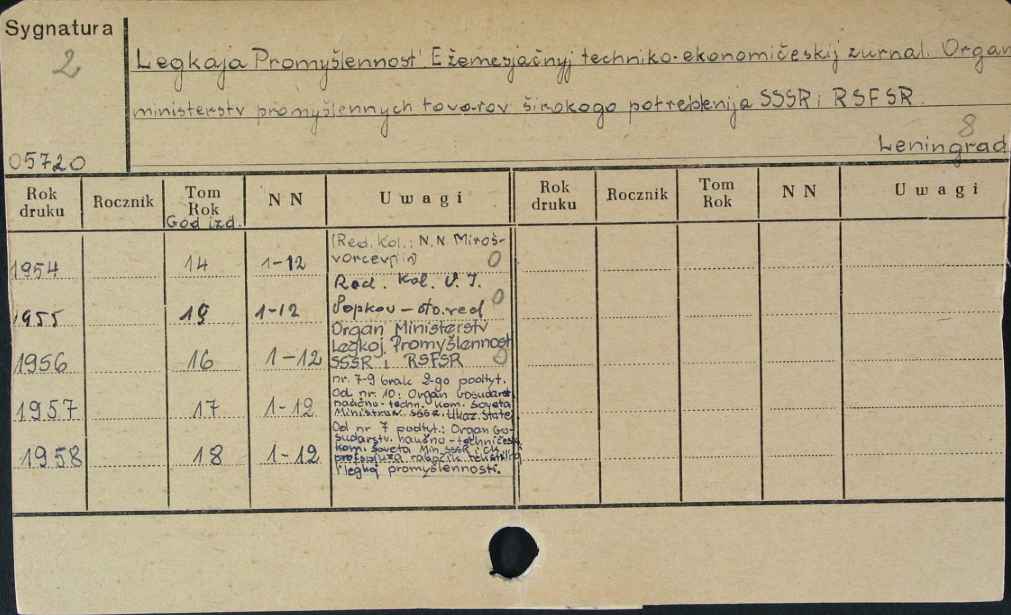 Sygnatura
2
Legkaja Promyšlennost' Ežemesjačnyj techniko-ekonomičeskij žurnal. Organ
ministerstv promyšlennych tovarov širokogo potreblenija SSSR i RSFSR.
8
Leningrad
05720
Rok druku Rocznik Tom Rok NN Uwagi Rok druku Rocznik Tom Rok NN Uwagi
God izd.
1954 14 1-12 (Red. Kol.: N.N. Miroš-
0
Red. Kol. V. I.
1955 15 1-12 Popkov - otv. red 0
Organ Ministerstv
Legkoj Promyšlennost
1956 16 1-12 SSSR i RSFSR 0
nr. 7-9 brak 2-go podtyt.
Od nr. 10: Organ Gosudarst.
naučno-techn. kom. Soveta
1957 17 1-12 Ministrov SSSR. Ukaz. Statej
Od nr 7 podtyt.: Organ Go-
sudarstv. naučno-techničesk.
kom. Soveta Min. SSSR i CK
1958 18 1-12 profsojuza rabočich
i legkoj promyšlennosti.